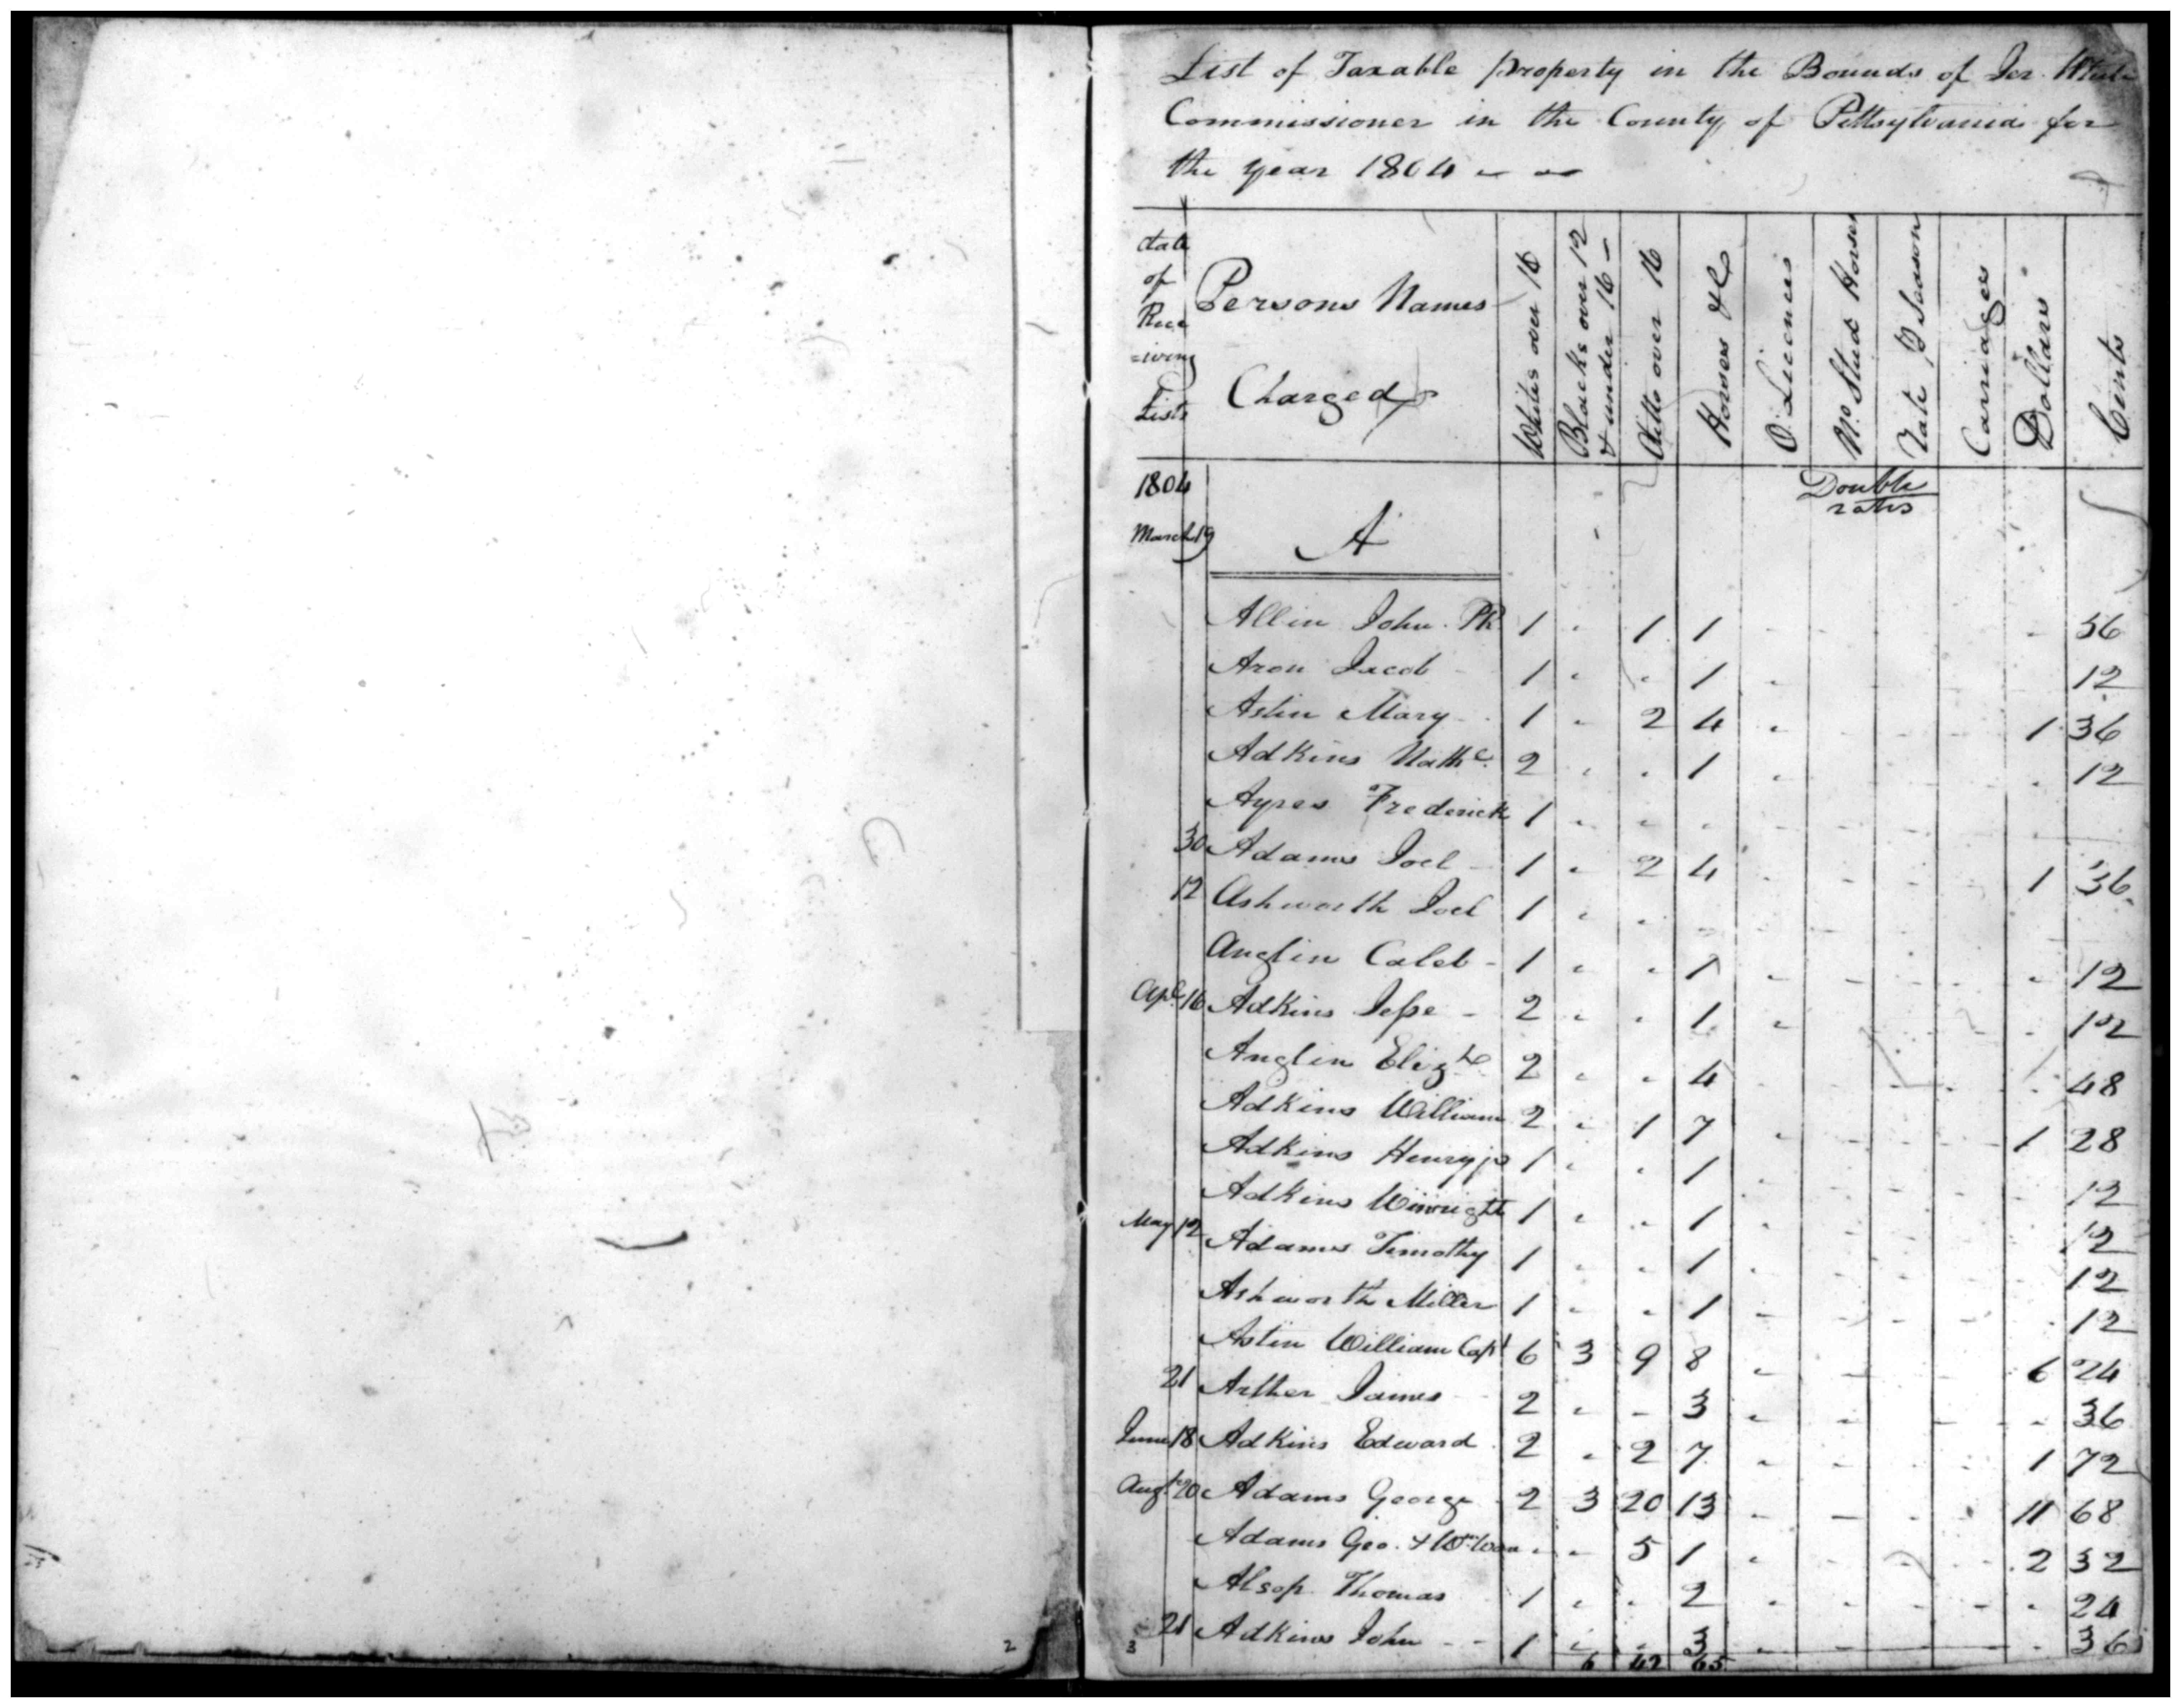 List of Taxable property in the Bounds of Jer.
Commissioner in the County of Pittsylvania for
the year 1804
date of Rece=iving Lists | Persons Names Charged | Whites over 16 | Blacks over 12 & under 16 | ditto over 16 | Horses &c | O. Licenses | No. Stud Horses | Rate P Season | Carriages | Dollars | Cents
1804 Double
rates
March 19 A
Allin John. 1 - 1 1 - - 56
Aron Jacob 1 - - 1 - 12
Astin Mary 1 - 2 4 - 1 36
Adkins Nathl. 2 - - 1 - - 12
Ayres Frederick 1 - - -
30 Adams Joel 1 - 2 4 - 1 36
12 Ashworth Joel 1 - -
Anglin Caleb 1 - - 1 - - 12
Apl. 16 Adkins Jesse 2 - - 1 - - 12
Anglin Elizth 2 - - 4 - - 48
Adkins William 2 - 1 7 - 1 28
Adkins Henry jr 1 - - 1 - - 12
Adkins Winright 1 - - 1 - 12
May 12 Adams Timothy 1 - - 1 - 12
Ashworth Miller 1 - - 1 - - 12
Astin William Capt 6 3 9 8 - 6 24
21 Arther James 2 - - 3 - - 36
June 18 Adkins Edward 2 - 2 7 - 1 72
Augt. 20 Adams George 2 3 20 13 - 11 68
Adams Geo. & Wm. - - 5 1 - 2 32
Alsop Thomas 1 - - 2 - - 24
21 Adkins John - - 1 - - 3 - - 36
6 42 65
2 3